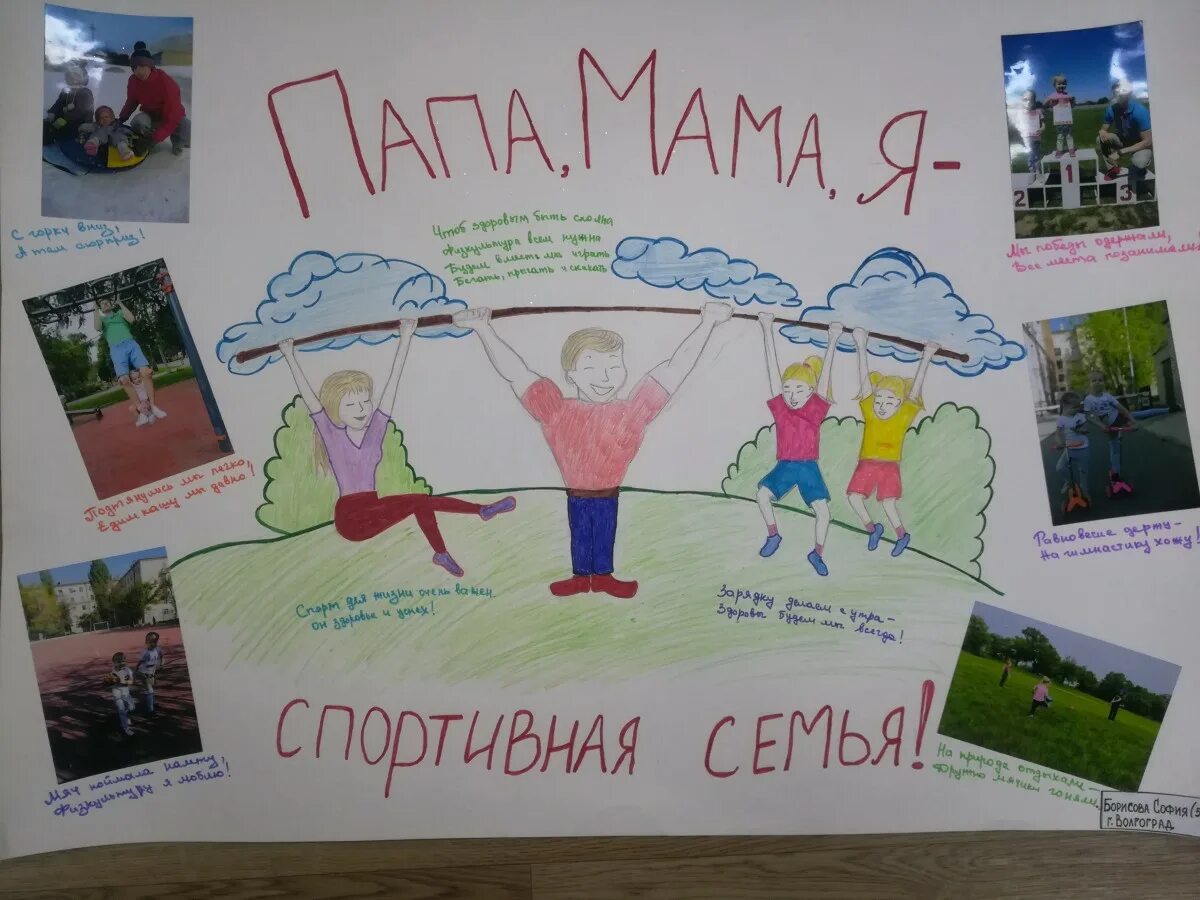 ПАПА, МАМА, Я-
С горки вниз,
А там сюрприз!
Чтоб здоровым быть сполна
Физкультура всем нужна
Будем вместе мы играть
Бегать, прыгать и скакать
2 1 3
Мы победы одержали,
Все места позанимали!
Подтянулись мы легко,
Едим кашу мы давно!
Равновесие держу-
На гимнастику хожу!
Спорт для жизни очень важен.
Он здоровье и успех!
Зарядку делаем с утра-
Здоровы будем мы всегда!
Мяч поймала налету,
Физкультуру я люблю!
СПОРТИВНАЯ СЕМЬЯ!
На природе отдыхали-
Дружно мячики гоняли.
БОРИСОВА СОФИЯ (5
г. ВОЛГОГРАД